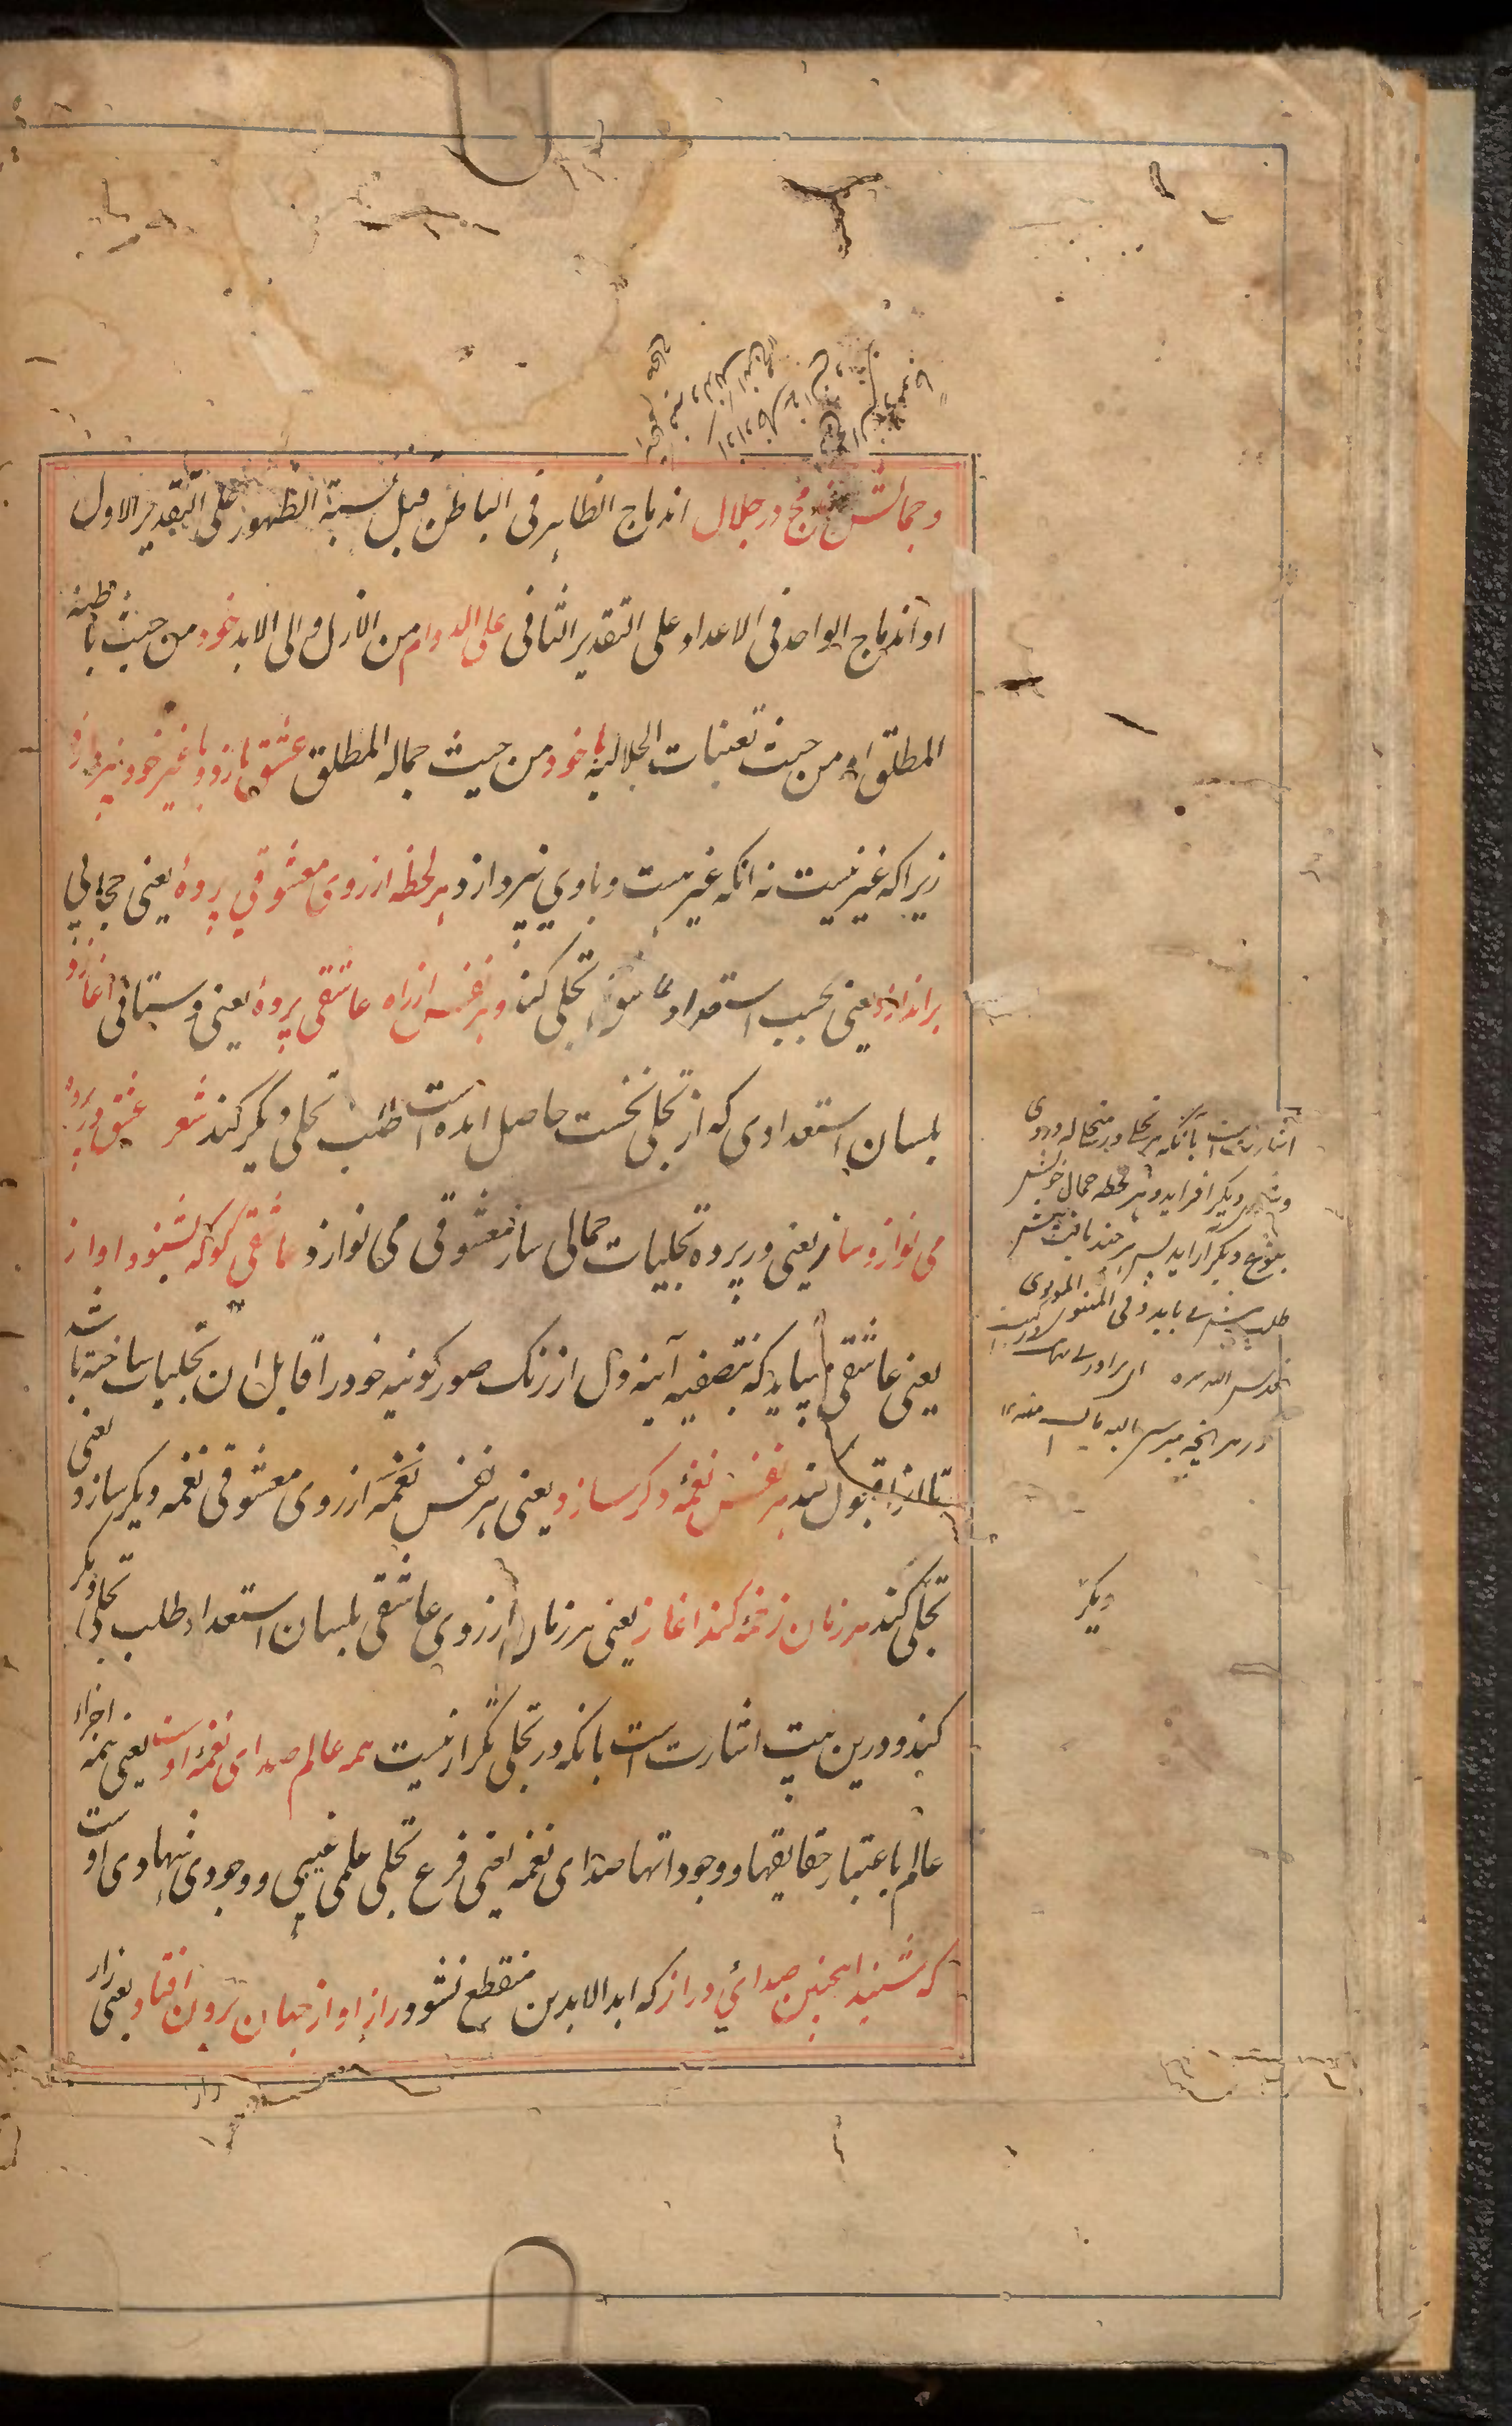 و جمالش مندمج در جلال اندماج الظاهر فی الباطن قبل نسبة الظهور علی التقدیر الاول
او اندماج الواحد فی الاعداد علی التقدیر الثانی علی الدوام من الازل الی الابد خود من حیث باطنه
المطلق او من حیث تعینات الجلالیه با خود من حیث جماله المطلق عشق بازد و با غیر خود نپردازد
زیراکه غیر نیست نه انکه غیر هست و باوی نپردازد هر لحظه از روی معشوقی پردهٔ یعنی حجابی
براندازد یعنی بحسب استعداد تجلی کند و هر نفس از راه عاشقی پردهٔ یعنی دستانی اغازد
بلسان استعدادی که از تجلی نخست حاصل امده است طلب تجلی دیگر کند شعر عشق در پرده
می نوازد ساز یعنی در پرده تجلیات جمالی ساز معشوقی می نوازد عاشقی کو که بشنود اواز
یعنی عاشقی میباید که بتصفیه آینه دل از زنک صور کونیه خود را قابل ان تجلیات ساخته باشد
تا انرا قبول کند هر نفس نغمهٔ دکر سازد یعنی هر نفس نغمه از روی معشوقی نغمه دیکر سازد یعنی
تجلی کند هر زمان زخمهٔ کند اغاز یعنی هر زمان از روی عاشقی بلسان استعداد طلب تجلی دیکر
کند و درین بیت اشارت است بانکه در تجلی تکرار نیست همه عالم صدای نغمهٔ اوست یعنی همه اجزاء
عالم باعتبار حقایقها و وجوداتها صدای نغمه یعنی فرع تجلی علمی غیبی و وجودی شهادی اوست
که شنید اینچنین صدائی دراز که ابد الابدین منقطع نشود راز او از جهان برون افتاد یعنی راز
اشارتست بانکه هر تجلی در
دیگر افزاید و هر لحظه جمال خویش
بنوع دیگر آراید پس هر چند یافت بیشتر
طلب بیشتر می باید و فی المثنوی المولوی
قدس الله سره ای برادر بی نهایت
در هر انچه میرسی بالله مایست منه ۱۲
دیکر